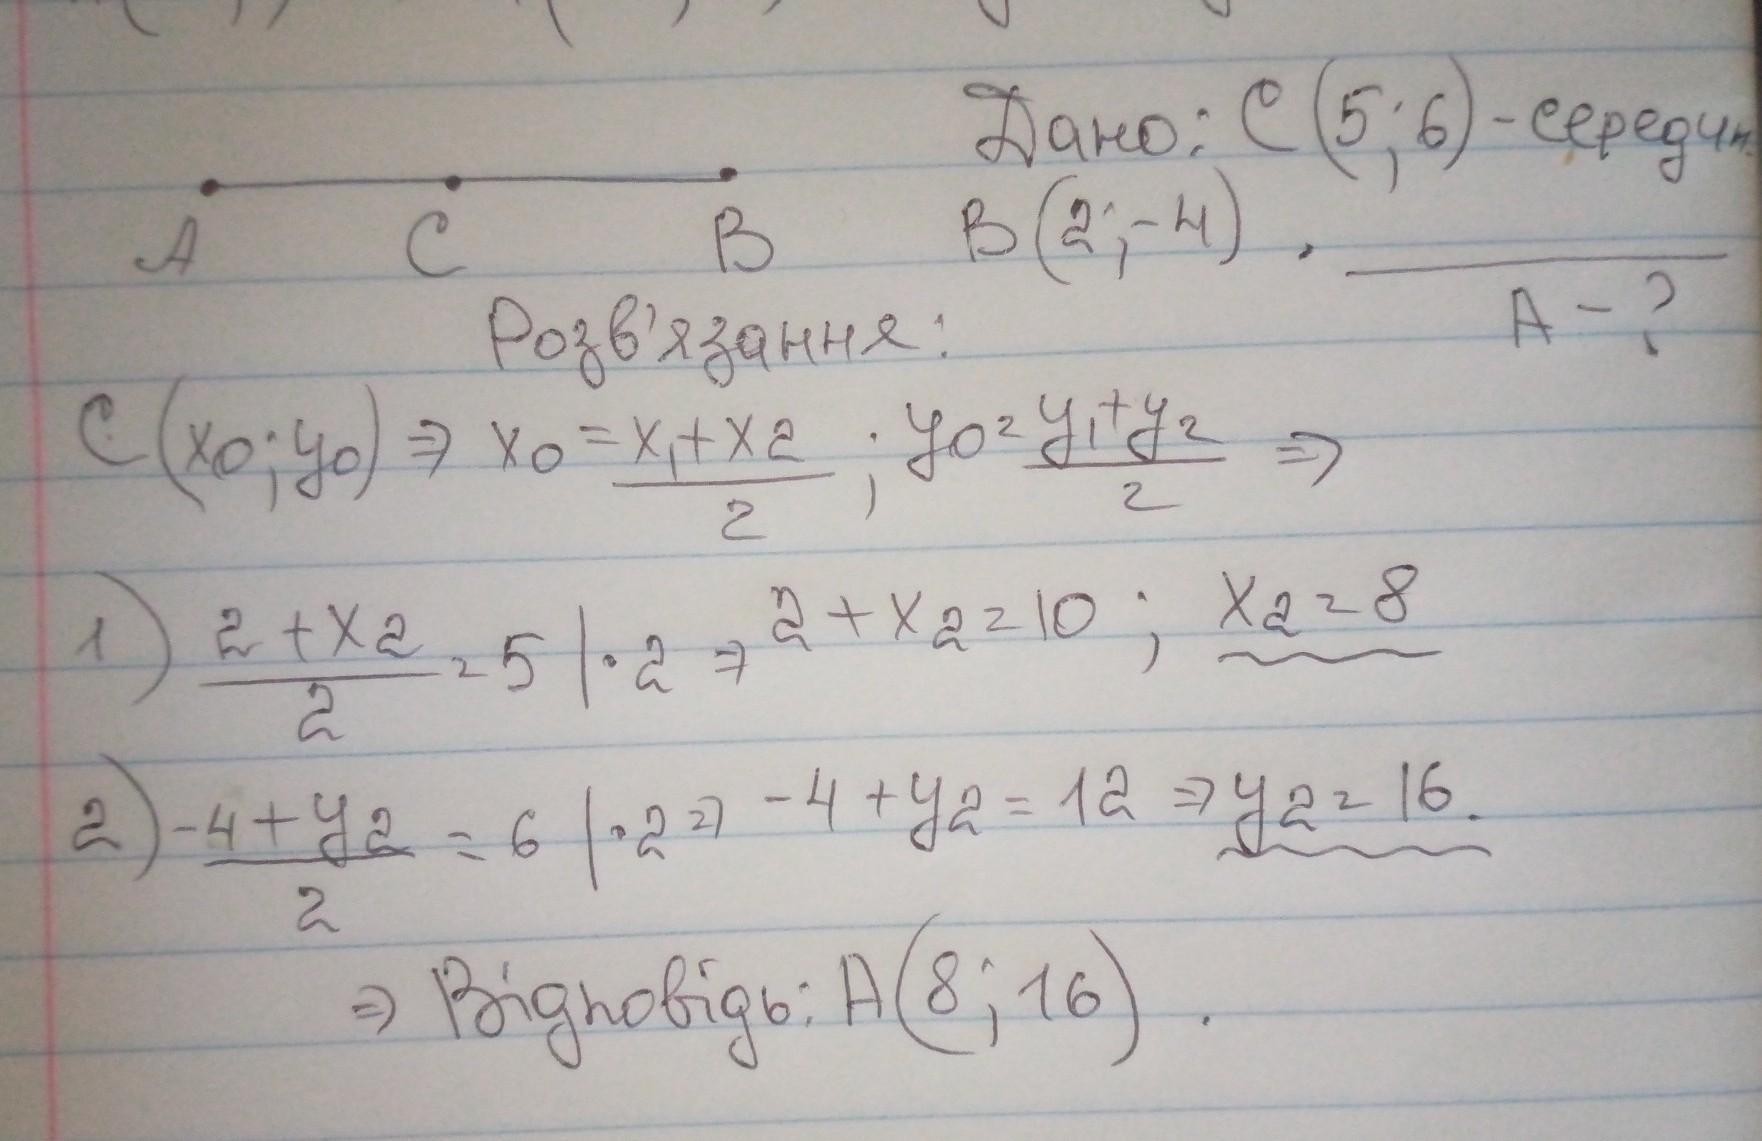 Дано: С(5;6)-середин
А С В В(2;-4).
А-?
Розв'язання:
С(x0;y0) ⇒ x0 = x1+x2/2 ; y0 = y1+y2/2 ⇒
1) 2+x2/2 = 5 |·2 ⇒ 2+x2=10; x2=8
2) -4+y2/2 = 6 |·2 ⇒ -4+y2=12 ⇒ y2=16.
⇒ Відповідь: А(8;16).